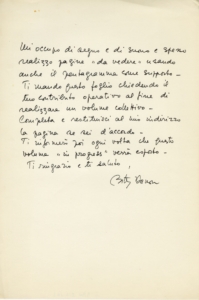 Mi occupo di segno e di suono e spesso
realizzo pagine "da vedere" usando
anche il pentagramma come supporto -
Ti mando questo foglio chiedendo il
tuo contributo operativo al fine di
realizzare un volume collettivo -
Completa e restituisci al mio indirizzo
la pagina se sei d'accordo -
Ti informerò poi ogni volta che questo
volume "in progress" verrà esposto -
Ti ringrazio e ti saluto,
Betty Danon